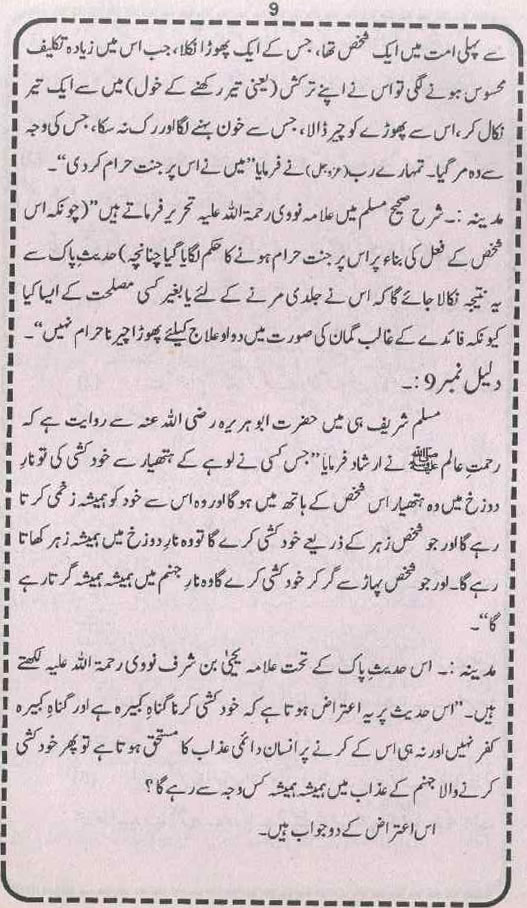 9
سے پہلی امت میں ایک شخص تھا، جس کے ایک پھوڑا نکلا، جب اس میں زیادہ تکلیف
محسوس ہونے لگی تو اس نے اپنے ترکش (یعنی تیر رکھنے کے خول) میں سے ایک تیر
نکال کر، اس سے پھوڑے کو چیر ڈالا، جس سے خون بہنے لگا اور رک نہ سکا، جس کی وجہ
سے وہ مر گیا۔ تمہارے رب (عزوجل) نے فرمایا ”میں نے اس پر جنت حرام کر دی“۔
مدینہ :۔ شرح صحیح مسلم میں علامہ نووی رحمۃ اللہ علیہ تحریر فرماتے ہیں ”(چونکہ اس
شخص کے فعل کی بناء پر اس پر جنت حرام ہونے کا حکم لگایا گیا چنانچہ) حدیث پاک سے
یہ نتیجہ نکالا جائے گا کہ اس نے جلدی مرنے کے لئے یا بغیر کسی مصلحت کے ایسا کیا
کیونکہ فائدے کے غالب گمان کی صورت میں دوا و علاج کیلئے پھوڑا چیرنا حرام نہیں“۔
دلیل نمبر 9 :۔
مسلم شریف ہی میں حضرت ابو ہریرہ رضی اللہ عنہ سے روایت ہے کہ
رحمتِ عالم ﷺ نے ارشاد فرمایا ”جس کسی نے لوہے کے ہتھیار سے خود کشی کی تو نارِ
دوزخ میں وہ ہتھیار اس شخص کے ہاتھ میں ہوگا اور وہ اس سے خود کو ہمیشہ زخمی کرتا
رہے گا اور جو شخص زہر کے ذریعے خود کشی کرے گا تو وہ نارِ دوزخ میں ہمیشہ زہر کھاتا
رہے گا۔ اور جو شخص پہاڑ سے گر کر خود کشی کرے گا وہ نارِ جہنم میں ہمیشہ ہمیشہ گرتا رہے
گا“۔
مدینہ :۔ اس حدیثِ پاک کے تحت علامہ یحییٰ بن شرف نووی رحمۃ اللہ علیہ لکھتے
ہیں۔ ”اس حدیث پر یہ اعتراض ہوتا ہے کہ خود کشی کرنا گناہِ کبیرہ ہے اور گناہِ کبیرہ
کفر نہیں اور نہ ہی اس کے کرنے پر انسان دائمی عذاب کا مستحق ہوتا ہے تو پھر خود کشی
کرنے والا جہنم کے عذاب میں ہمیشہ ہمیشہ کس وجہ سے رہے گا؟
اس اعتراض کے دو جواب ہیں۔